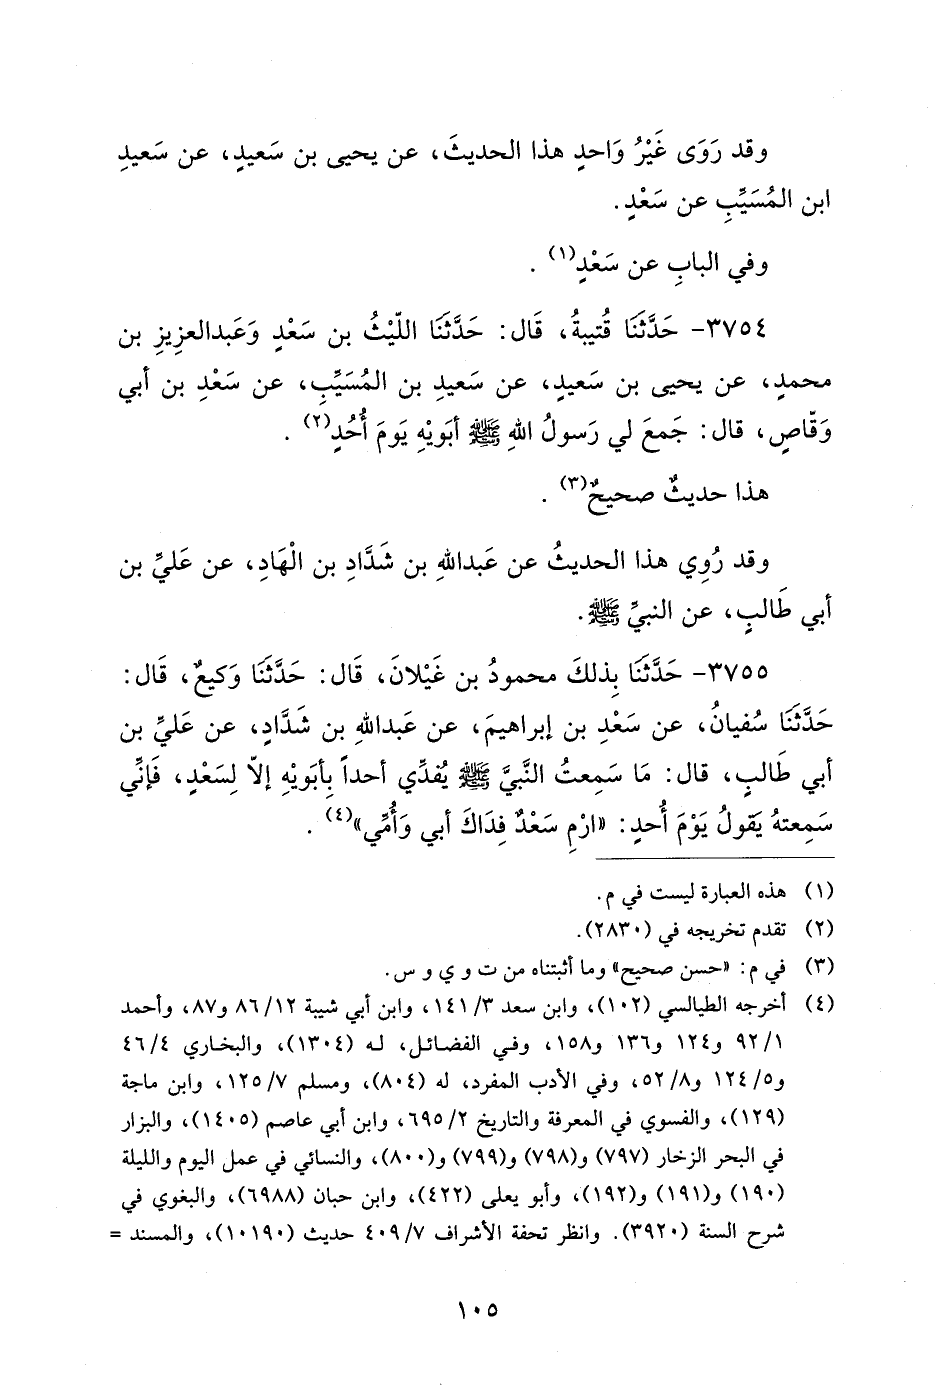 وقد رَوَى غَيْرُ وَاحدٍ هذا الحديثَ، عن يحيى بن سَعيدٍ، عن سَعيدِ
ابن المُسَيِّبِ عن سَعْدٍ.
وفي البابِ عن سَعْدٍ(١) .
٣٧٥٤- حَدَّثَنَا قُتيبةُ، قَال: حَدَّثَنَا اللّيْثُ بن سَعْدٍ وَعَبدالعزِيزِ بن
محمدٍ، عن يحيى بن سَعيدٍ، عن سَعيدِ بن المُسَيِّبِ، عن سَعْدِ بن أبي
وَقّاصٍ، قال: جَمعَ لي رَسولُ اللهِ ﷺ أبَويْهِ يَومَ أُحُدٍ(٢) .
هذا حديثٌ صحيحٌ(٣) .
وقد رُوِي هذا الحديثُ عن عَبدالله بن شَدَّادِ بن الْهَادِ، عن عَليِّ بن
أبي طَالبٍ، عن النبيِّ ﷺ.
٣٧٥٥- حَدَّثَنَا بِذلكَ محمودُ بن غَيْلانَ، قَال: حَدَّثَنَا وَكيعٌ، قَال:
حَدَّثَنَا سُفيانُ، عن سَعْدِ بن إبراهيمَ، عن عَبدالله بن شَدَّادٍ، عن عَليِّ بن
أبي طَالبٍ، قال: مَا سَمِعتُ النَّبيَّ ﷺ يُفدِّي أحداً بِأبَويْهِ إلاّ لسَعْدٍ، فَإنِّي
سَمِعتهُ يَقولُ يَوْمَ أُحدٍ: «ارْمِ سَعْدٌ فِدَاكَ أبي وَأُمِّي»(٤) .
(١) هذه العبارة ليست في م.
(٢) تقدم تخريجه في (٢٨٣٠).
(٣) في م: «حسن صحيح» وما أثبتناه من ت و ي و س.
(٤) أخرجه الطيالسي (١٠٢)، وابن سعد ٣/ ١٤١، وابن أبي شيبة ١٢/ ٨٦ و٨٧، وأحمد
١/ ٩٢ و١٢٤ و١٣٦ و١٥٨، وفي الفضائل، له (١٣٠٤)، والبخاري ٤/ ٤٦
و٥/ ١٢٤ و٨/ ٥٢، وفي الأدب المفرد، له (٨٠٤)، ومسلم ٧/ ١٢٥، وابن ماجة
(١٢٩)، والفسوي في المعرفة والتاريخ ٢/ ٦٩٥، وابن أبي عاصم (١٤٠٥)، والبزار
في البحر الزخار (٧٩٧) و(٧٩٨) و(٧٩٩) و(٨٠٠)، والنسائي في عمل اليوم والليلة
(١٩٠) و(١٩١) و(١٩٢)، وأبو يعلى (٤٢٢)، وابن حبان (٦٩٨٨)، والبغوي في
شرح السنة (٣٩٢٠). وانظر تحفة الأشراف ٧/ ٤٠٩ حديث (١٠١٩٠)، والمسند =
١٠٥